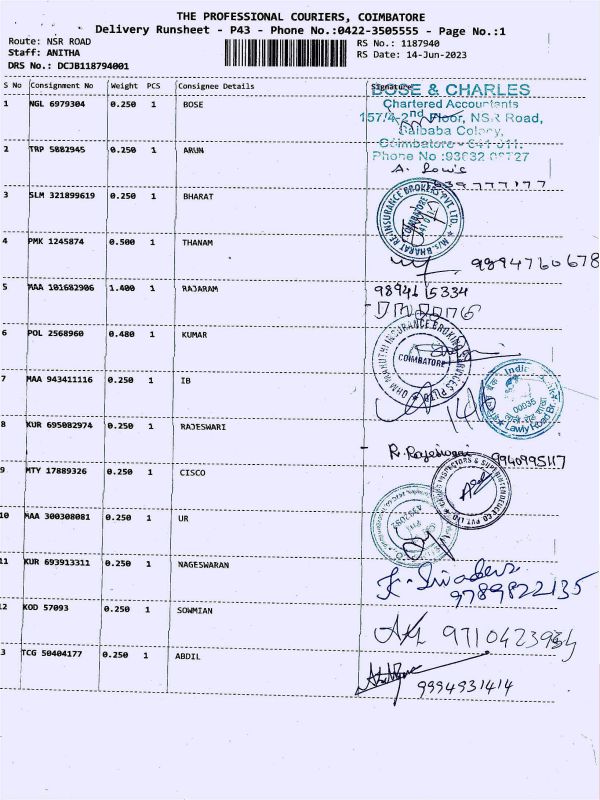 THE PROFESSIONAL COURIERS, COIMBATORE
Delivery Runsheet - P43 - Phone No.:0422-3505555 - Page No.:1
Route: NSR ROAD
Staff: ANITHA
DRS No.: DCJB118794001
RS No.: 1187940
RS Date: 14-Jun-2023
S No Consignment No Weight PCS Consignee Details Signature
BOSE & CHARLES
Chartered Accountants
157/4-2nd Floor, NSR Road,
Saibaba Colony,
Coimbatore - 641 011.
Phone No :
1 NGL 6979304 0.250 1 BOSE
2 TRP 5882945 0.250 1 ARUN
A.
3 SLM 321899619 0.250 1 BHARAT
M/s. BHARAT RE-INSURANCE BROKERS PVT. LTD.,
COIMBATORE
4 PMK 1245874 0.500 1 THANAM
5 MAA 101682906 1.400 1 RAJARAM
9894615334
6 POL 2568960 0.480 1 KUMAR
COIMBATORE
7 MAA 943411116 0.250 1 IB
00035
Lawly Road Br.
8 KUR 695082974 0.250 1 RAJESWARI
R. Rajeswari 9940995117
9 MTY 17889326 0.250 1 CISCO
INSPECTORS & SUPERINTENDENCE CO PVT LTD
10 MAA 300308081 0.250 1 UR
11 KUR 693913311 0.250 1 NAGESWARAN
9789822135
12 KOD 57093 0.250 1 SOWMIAN
3 TCG 50404177 0.250 1 ABDIL
9994931414